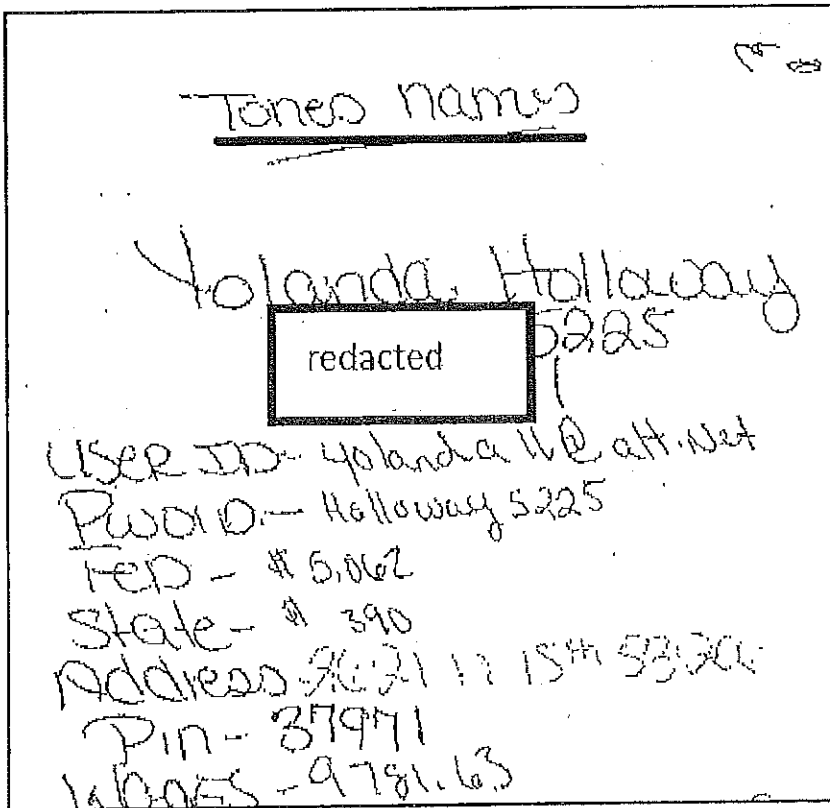 Tones names
Yolanda Holloway
5225
redacted
USER ID- yolanda11@att.Net
PWORD.- Holloway5225
FED - $ 5,062
State- $ 390
Address 15th
Pin - 37971
WAGES - 9781.63